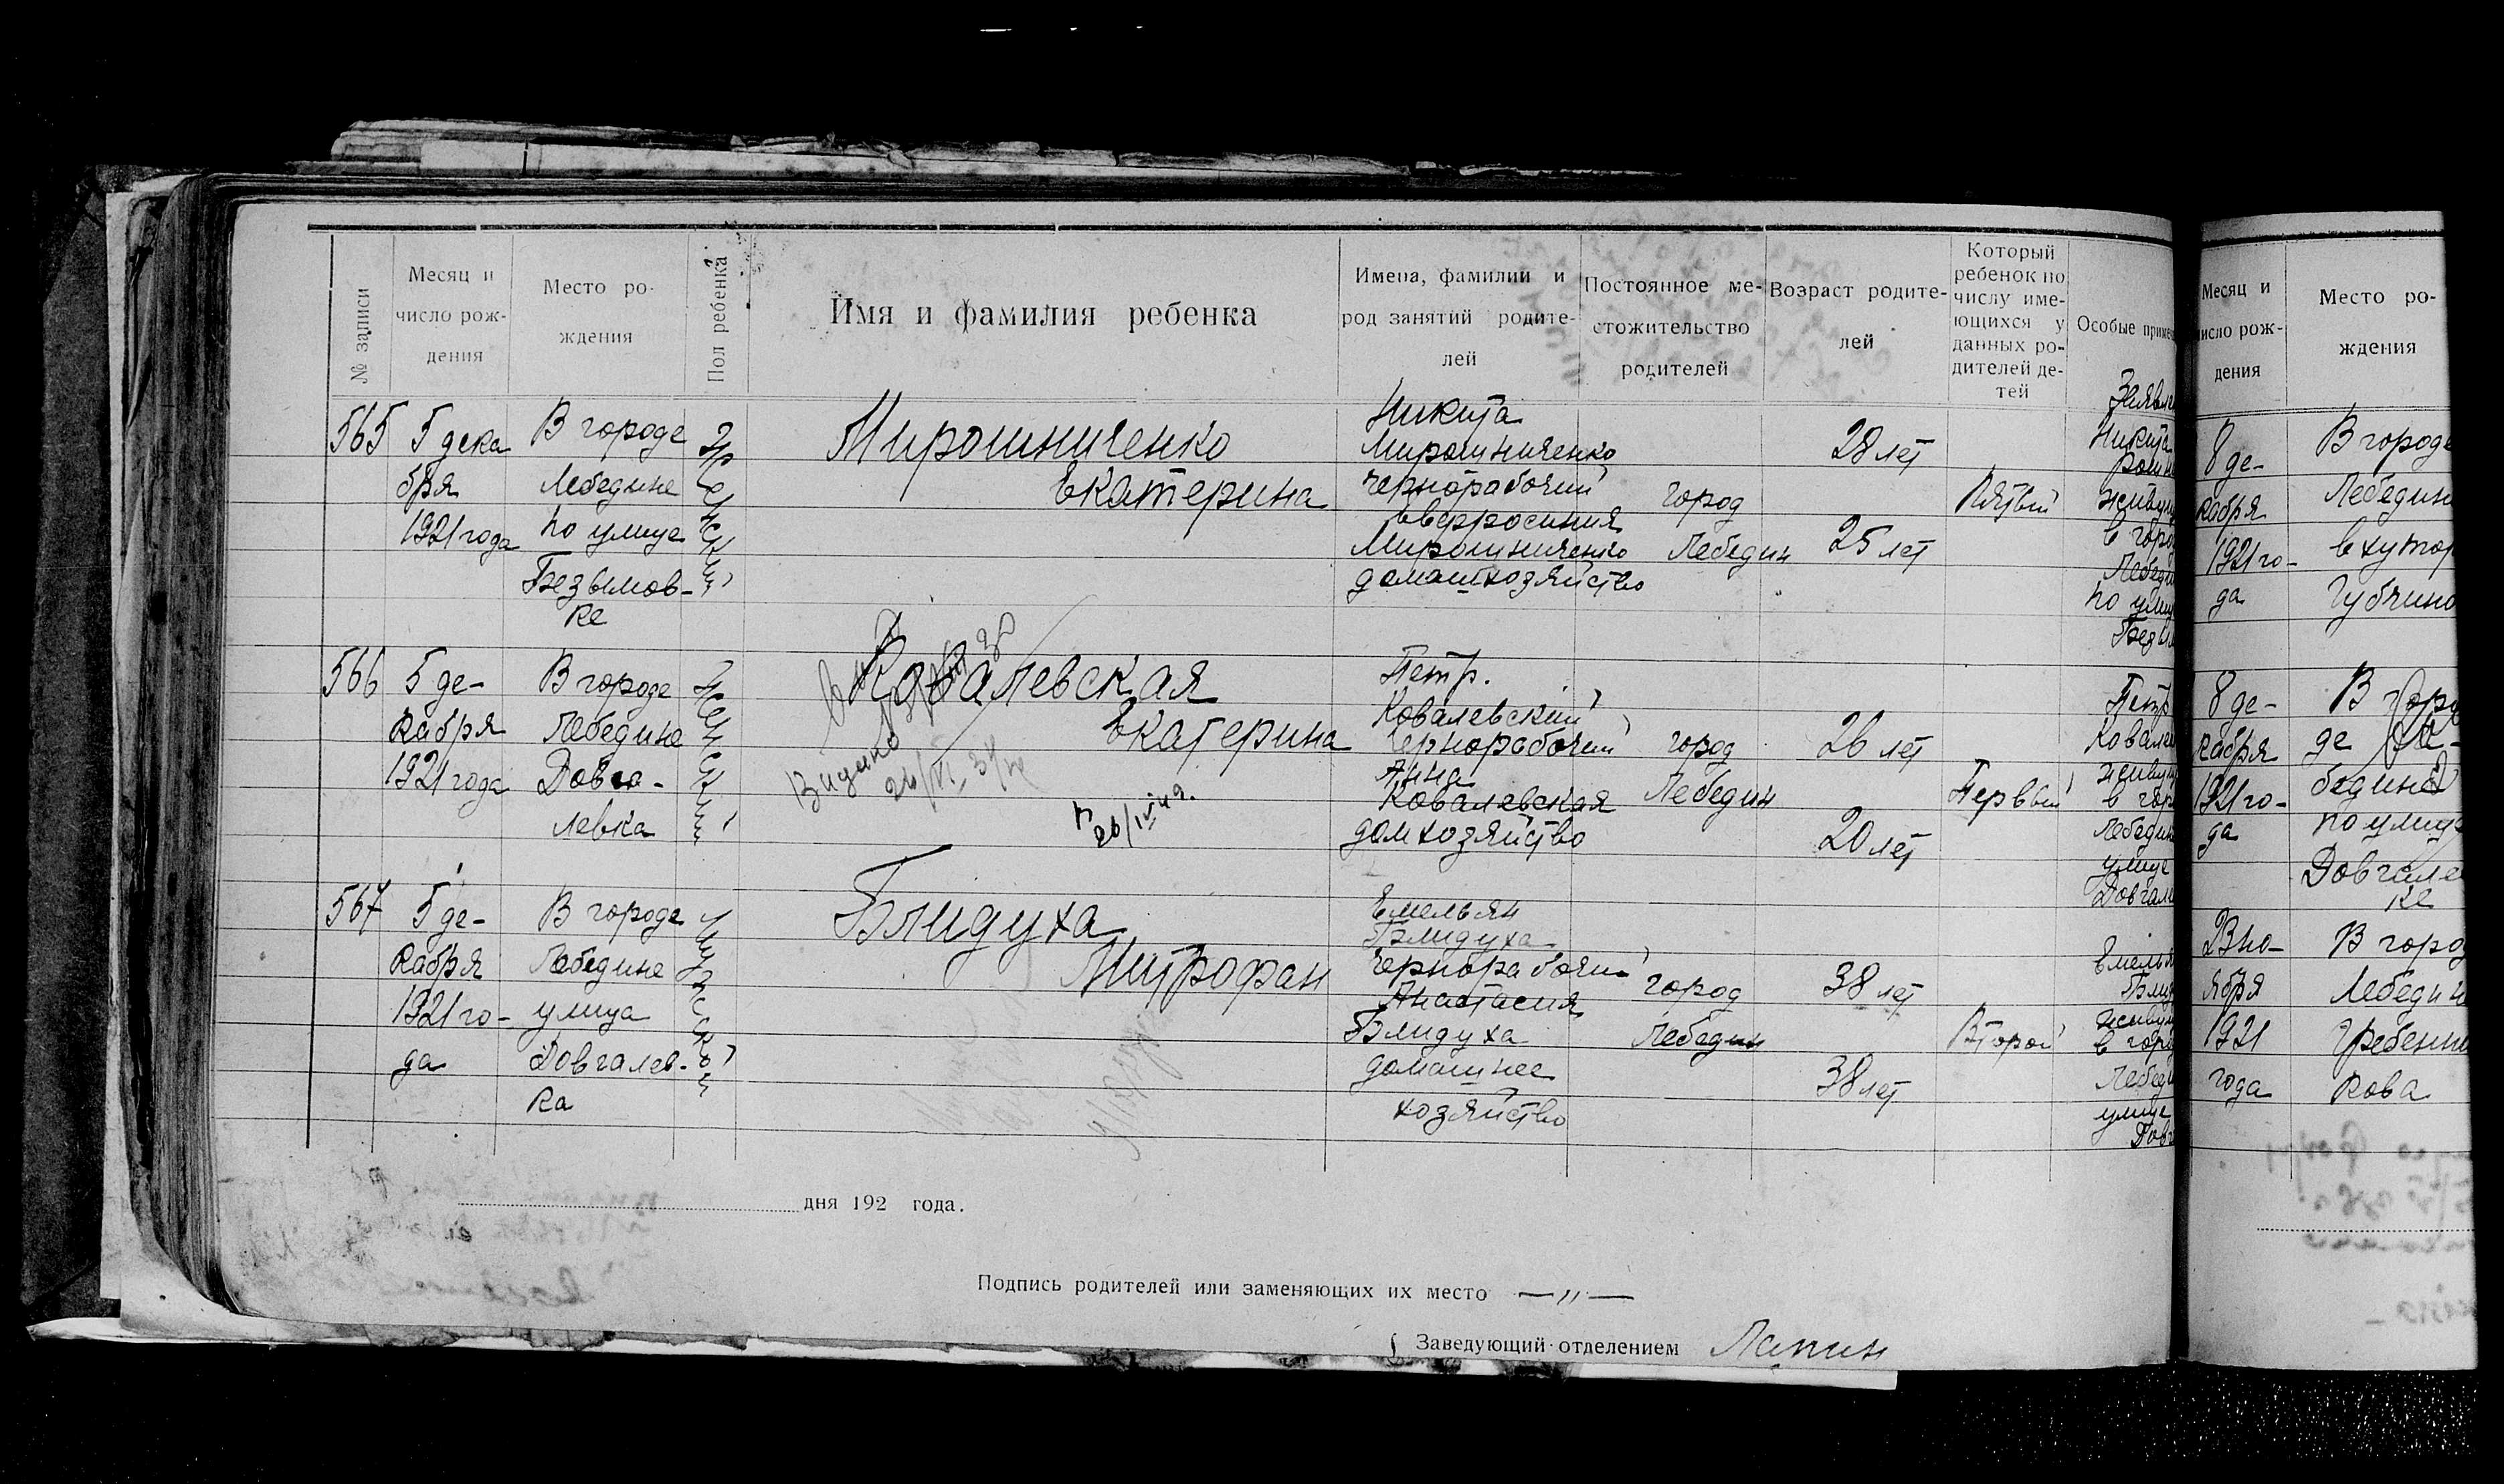 № записи
Месяц и
число рож-
дения
Место ро-
ждения
Пол ребенка
Имя и фамилия ребенка
Имена, фамилии и
род занятий родите-
лей
Постоянное ме-
стожительство
родителей
Возраст родите-
лей
Который
ребенок по
числу име-
ющихся у
данных ро-
дителей де-
тей
Особые приме
565
5 дека
бря
1921 года
В городе
Лебедине
по улице
Безымов-
ке
Женский
Мирошниченко
Екатерина
Никита
Мирошниченко
чернорабочий
Евфросиния
Мирошниченко
домашхозяйство
город
Лебедин
28 лет
25 лет
Пятый
Заявл
Никита
живущ
в горо
Лебеди
по ули
566
5 де-
кабря
1921 года
В городе
Лебедине
Довга-
левка
Женский
Ковалевская
Екатерина
Видано
Петр.
Ковалевский
Чернорабочий
Анна
Ковалевская
домхозяйство
город
Лебедин
26 лет
20 лет
Первый
Петр
Ковале
живущ
в гор
Лебедин
улице
Довгал
567
5 де-
кабря
1921 го-
да
В городе
Лебедине
улица
Довгалев-
ка
Мужской
Блидуха
Митрофан
Емельян
Блидуха
Чернорабочий
Анастасия
Блидуха
домашнее
хозяйство
город
Лебедин
38 лет
38 лет
Второй
Емелья
Блид
живущ
в горо
Лебеди
улице
Довг
дня 192 года.
Подпись родителей или заменяющих их место —〃—
Заведующий отделением Лапин
Месяц и
число рож-
дения
Место ро-
ждения
8 де-
кабря
1921 го-
да
В городе
Лебедин
в хутор
8 де-
кабря
1921 го-
да
В горо
де Ле-
бедине
по улице
Довгале
ке
23 но-
ября
1921
года
В город
Лебедин
Гребенни
кова